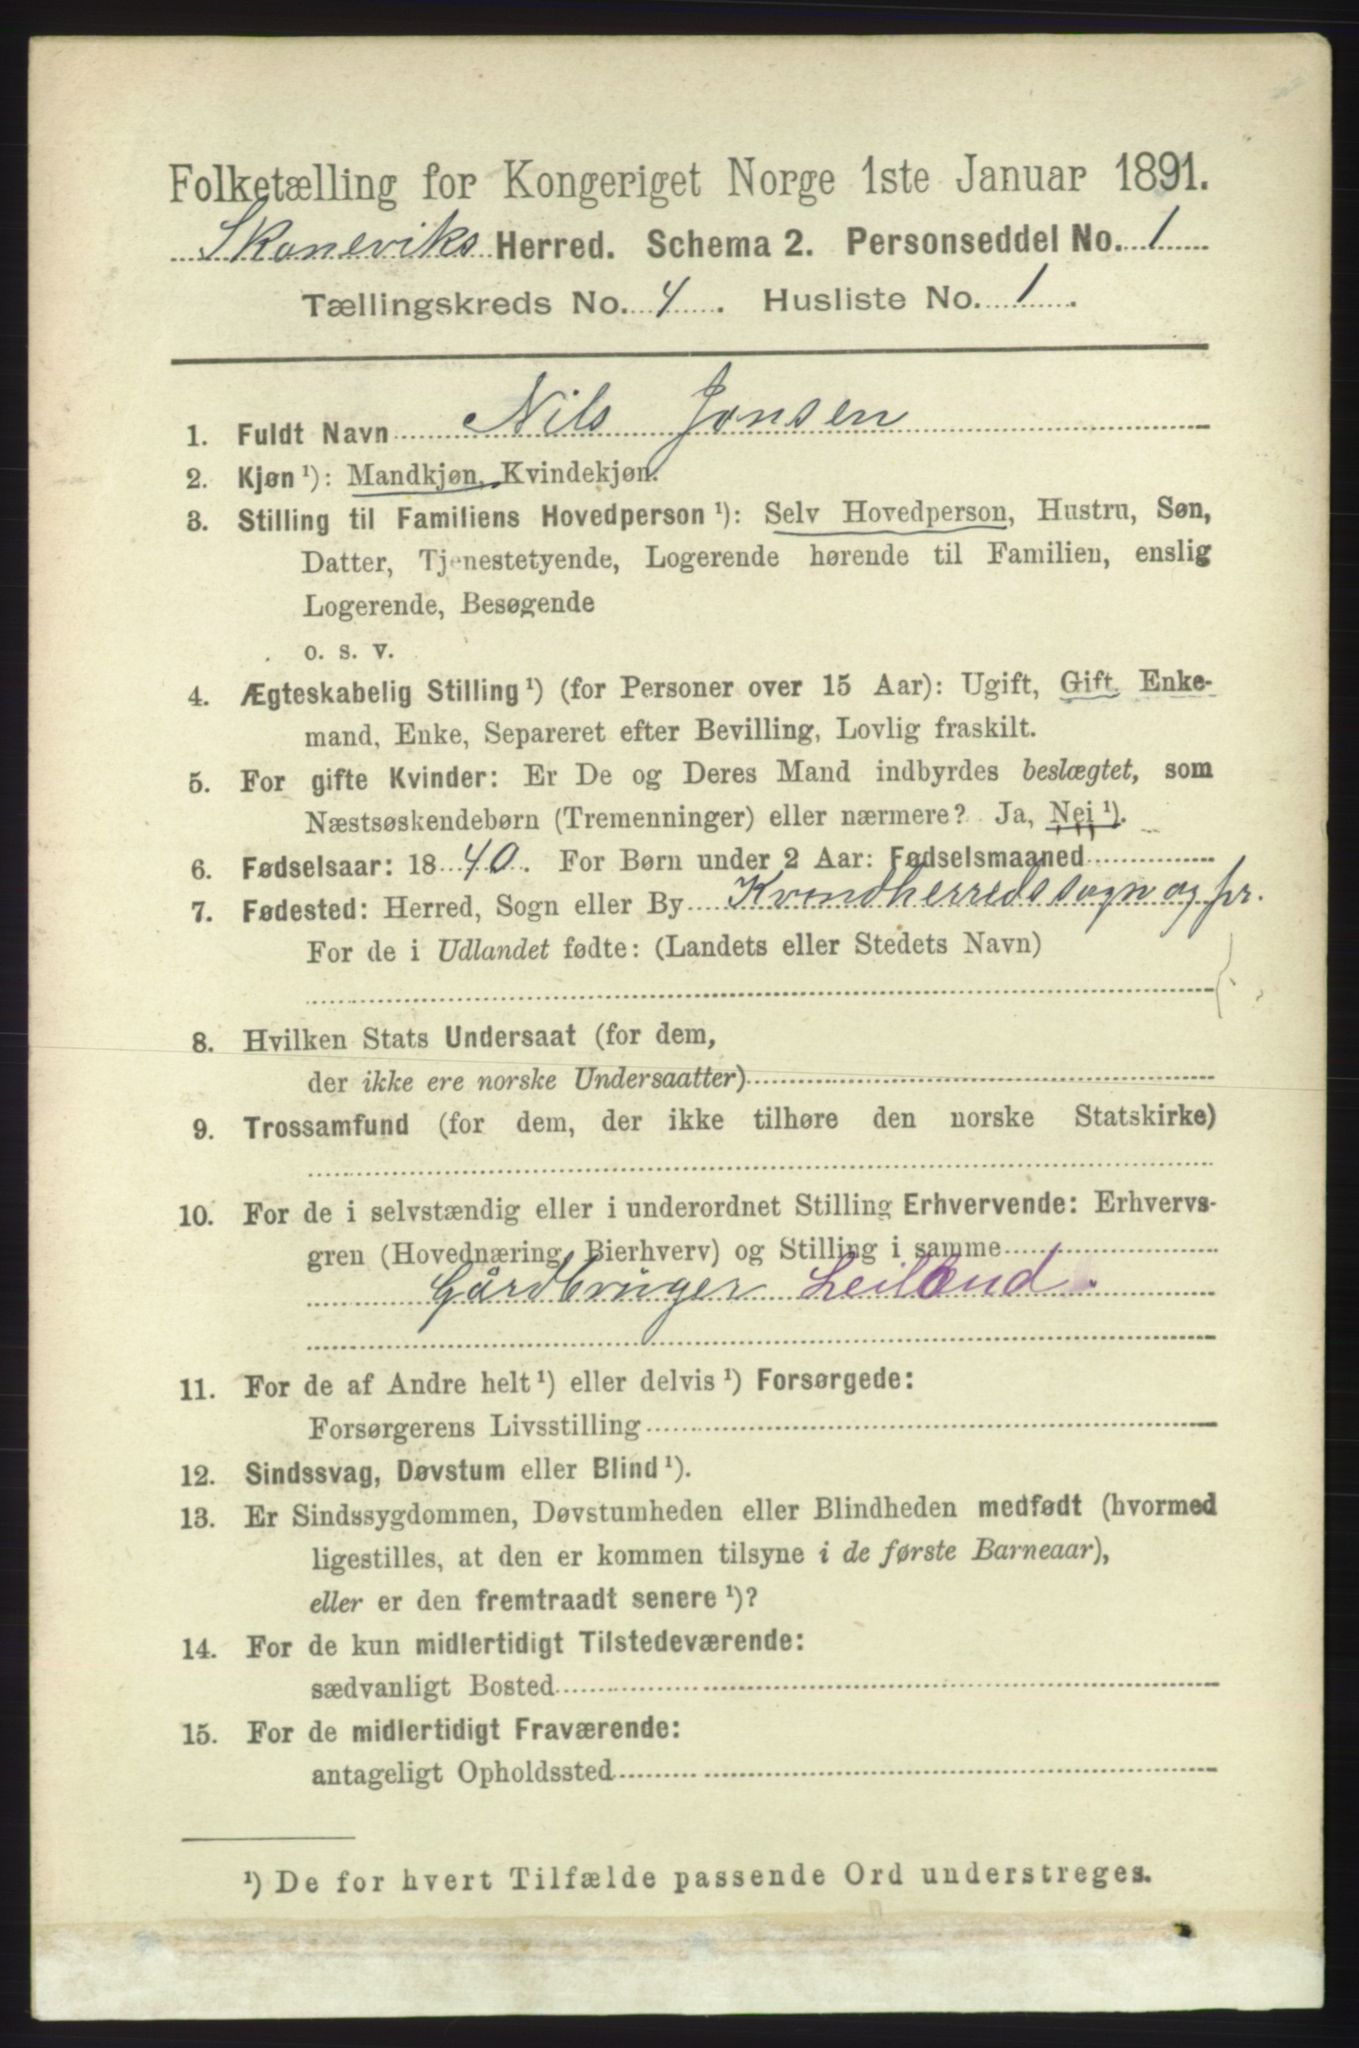 Folketælling for Kongeriget Norge 1ste Januar 1891.
Skaneviks Herred. Schema 2. Personseddel No. 1
Tællingskreds No. 4. Husliste No. 1.
1. Fuldt Navn Nils Jonsen
2. Kjøn ¹): Mandkjøn, Kvindekjøn.
3. Stilling til Familiens Hovedperson ¹): Selv Hovedperson, Hustru, Søn,
Datter, Tjenestetyende, Logerende hørende til Familien, enslig
Logerende, Besøgende
o. s. v.
4. Ægteskabelig Stilling ¹) (for Personer over 15 Aar): Ugift, Gift, Enke-
mand, Enke, Separeret efter Bevilling, Lovlig fraskilt.
5. For gifte Kvinder: Er De og Deres Mand indbyrdes beslægtet, som
Næstsøskendebørn (Tremenninger) eller nærmere? Ja, Nei ¹).
6. Fødselsaar: 1840. For Børn under 2 Aar: Fødselsmaaned
7. Fødested: Herred, Sogn eller By Kvindherreds sogn og pr.
For de i Udlandet fødte: (Landets eller Stedets Navn)
8. Hvilken Stats Undersaat (for dem,
der ikke ere norske Undersaatter)
9. Trossamfund (for dem, der ikke tilhøre den norske Statskirke)
10. For de i selvstændig eller i underordnet Stilling Erhvervende: Erhvervs-
gren (Hovednæring, Bierhverv) og Stilling i samme
Gårdbruger Leilænd.
11. For de af Andre helt ¹) eller delvis ¹) Forsørgede:
Forsørgerens Livsstilling
12. Sindssvag, Døvstum eller Blind ¹).
13. Er Sindssygdommen, Døvstumheden eller Blindheden medfødt (hvormed
ligestilles, at den er kommen tilsyne i de første Barneaar),
eller er den fremtraadt senere ¹)?
14. For de kun midlertidigt Tilstedeværende:
sædvanligt Bosted
15. For de midlertidigt Fraværende:
antageligt Opholdssted
¹) De for hvert Tilfælde passende Ord understreges.